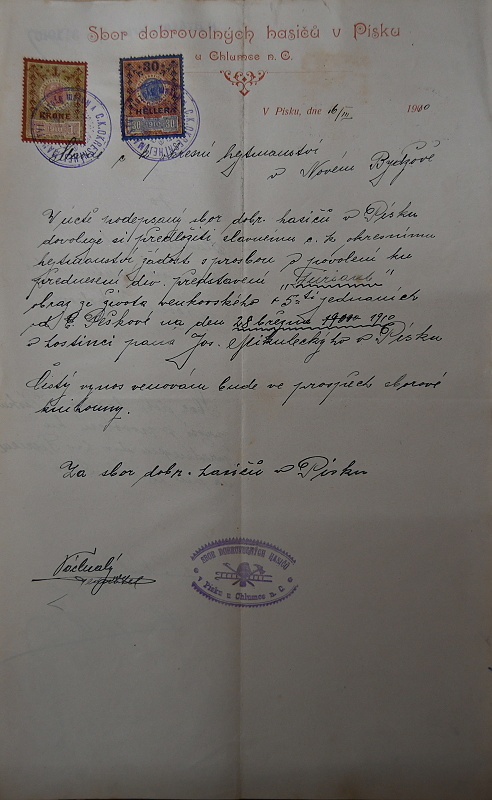 Sbor dobrovolných hasičů v Písku
u Chlumce n. C.
V Písku, dne 16/III 1910
30
KRONE HELLER
1910
okresní hejtmanství
v Novém Bydžově
V úctě podepsaný sbor dobr. hasičů v Písku
dovoluje si předložiti slavnému c. k. okresnímu
hejtmanství žádost s prosbou o povolení ku
přednesení div. představení
obraz ze života venkovského v 5-ti jednáních
od Pěškové na den 28 března 1910
v hostinci pana Jos. Mikuleckýho v Písku
Čistý výnos věnován bude ve prospěch sborové
knihovny.
Za sbor dobr. hasičů v Písku
SBOR DOBROVOLNÝCH HASIČŮ
v Písku u Chlumce n. C.